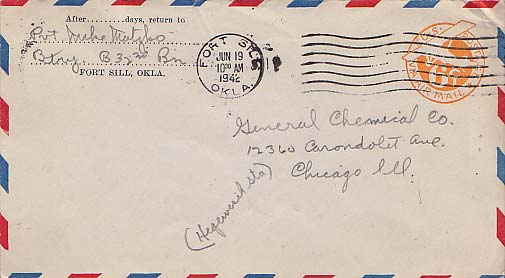 After...............days, return to
Pvt. Mike
Btry. B 32nd Bn
FORT SILL, OKLA.
FORT SILL
JUN 19
10 AM
1942
OKLA.
U.S. POSTAGE
6¢
VIA AIR MAIL
General Chemical Co.
12360 Carondolet Ave.
Chicago Ill.
(Hegewisch Sta)